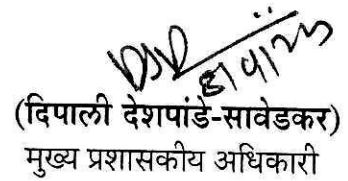 (दिपाली देशपांडे-सावेडकर)
मुख्य प्रशासकीय अधिकारी